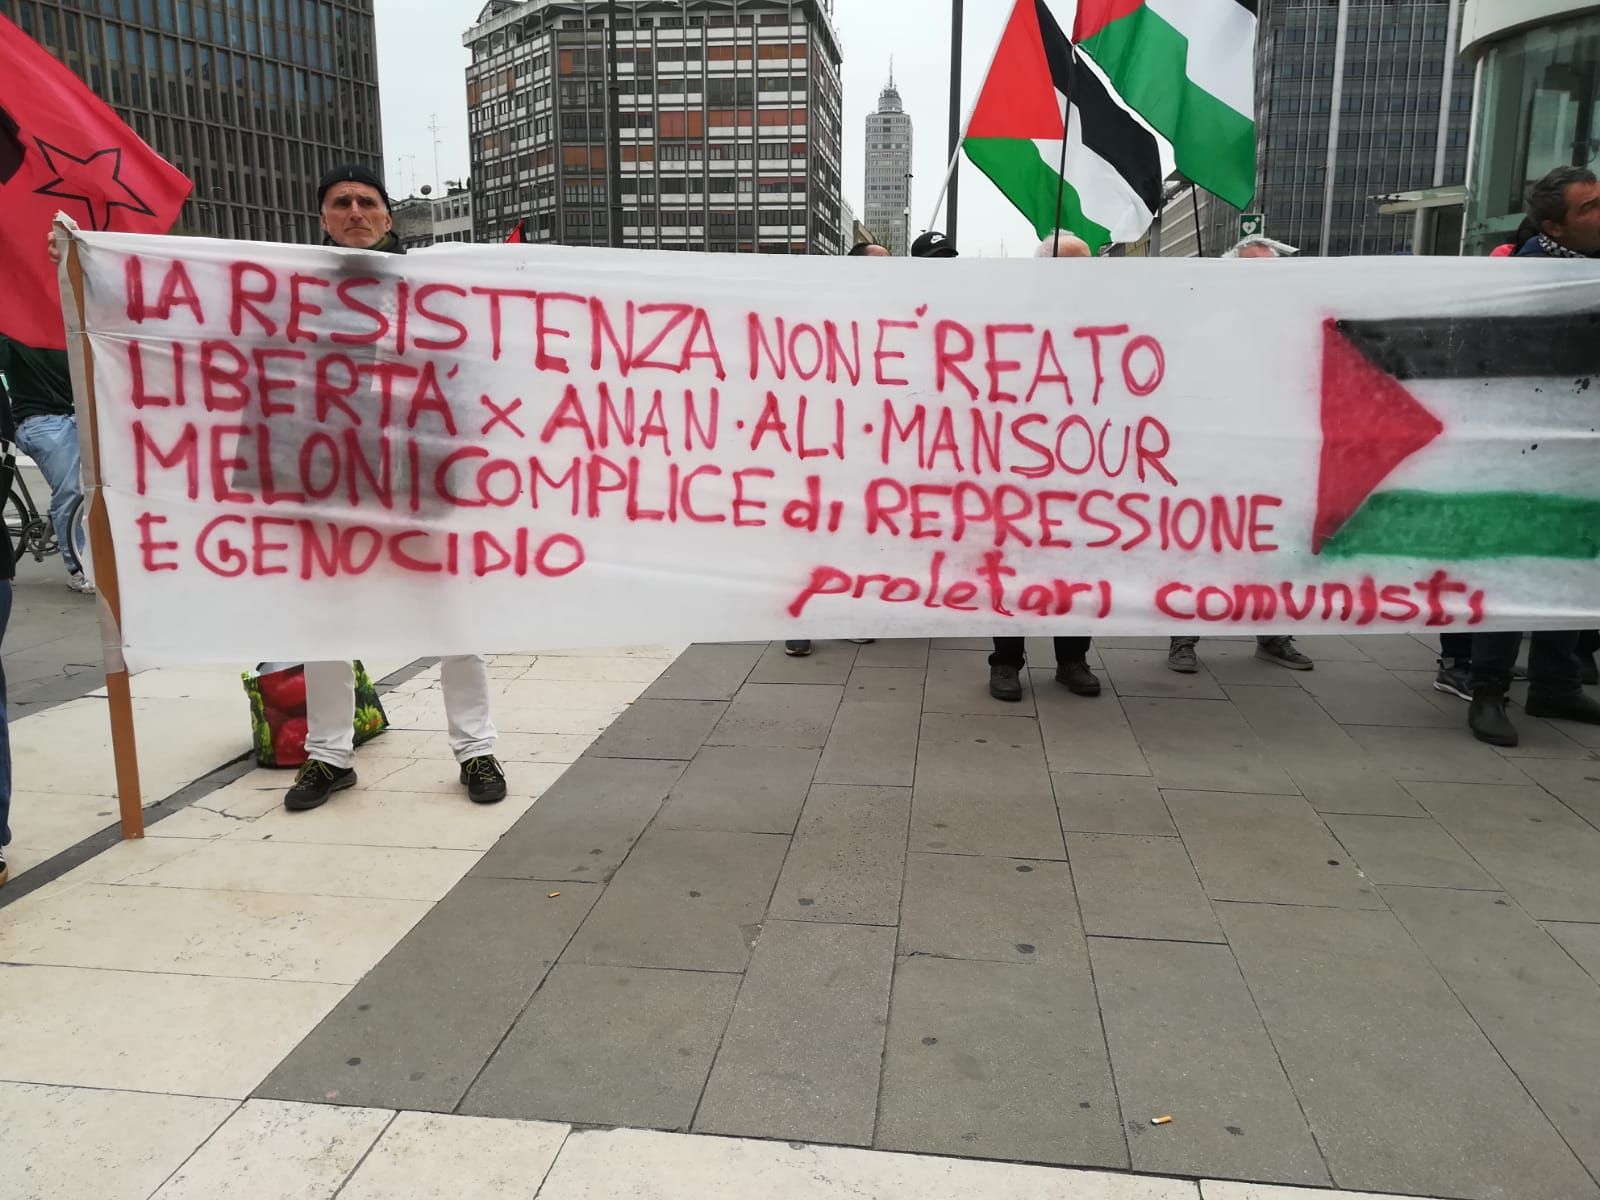 LA RESISTENZA NON E' REATO
LIBERTA' x ANAN · ALI · MANSOUR
MELONI COMPLICE di REPRESSIONE
E GENOCIDIO
proletari comunisti